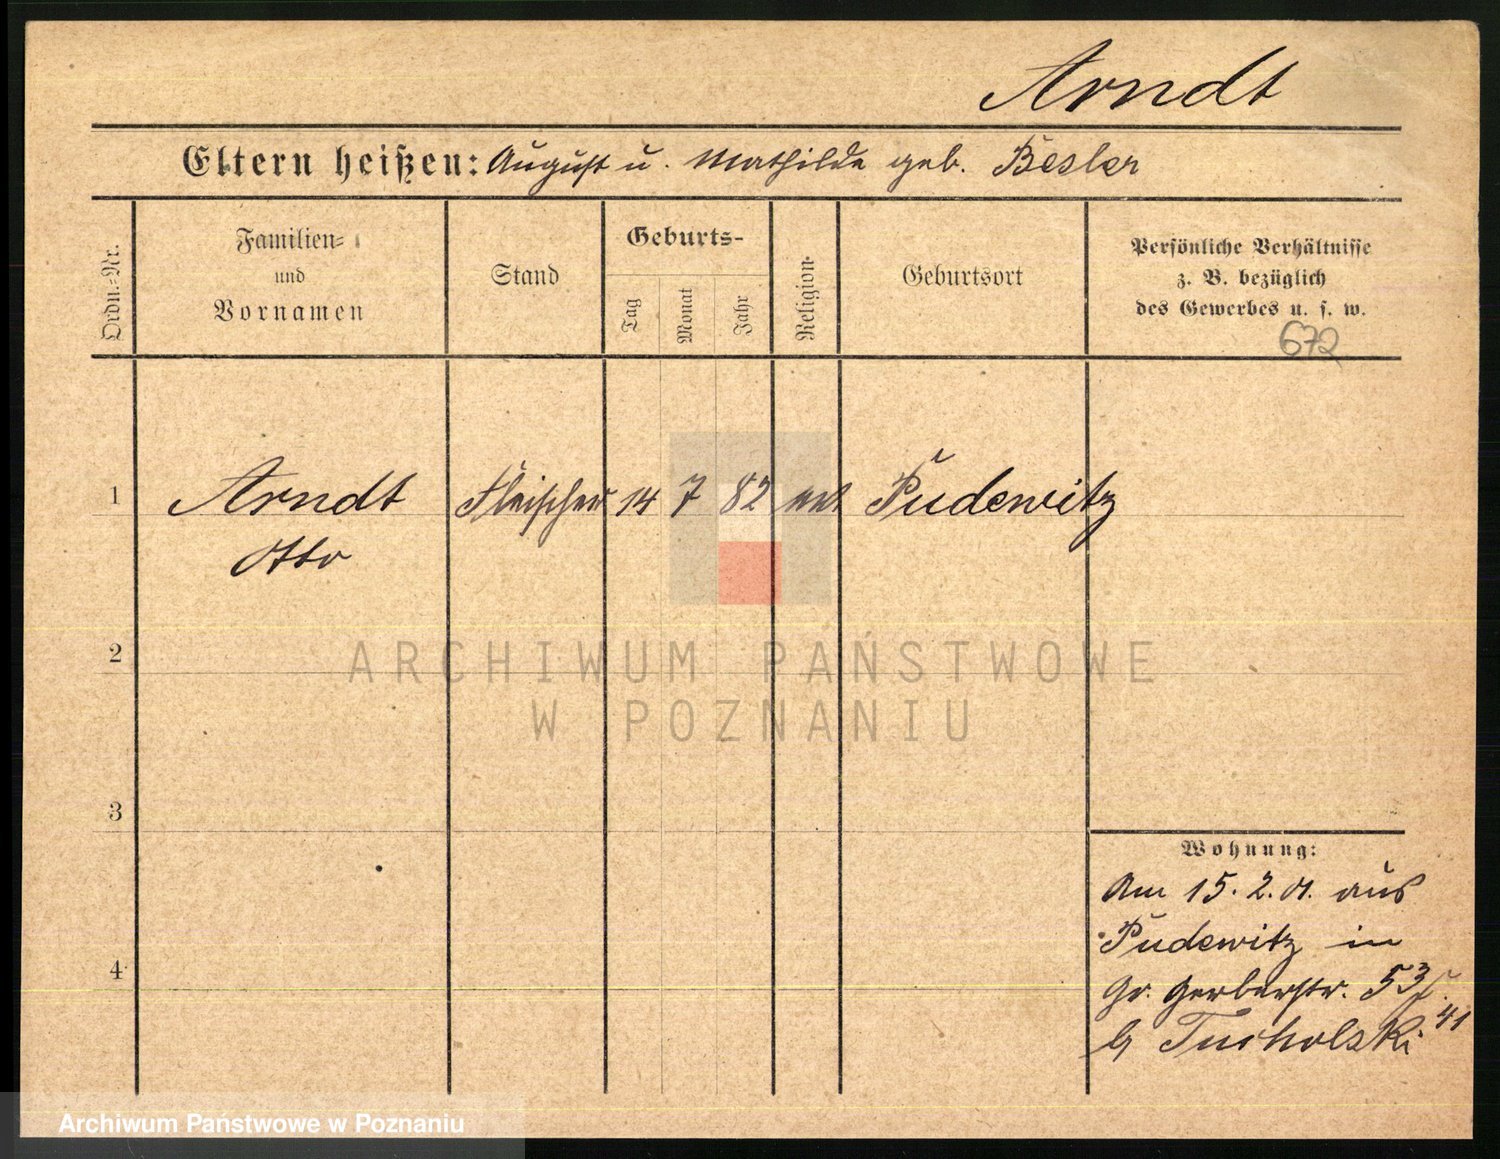 Arndt
Eltern heißen: August u. Mathilde geb. Besler
Ordn.-Nr.
Familien-
und
Vornamen
Stand
Geburts-
Tag
Monat
Jahr
Religion
Geburtsort
Persönliche Verhältnisse
z. B. bezüglich
des Gewerbes u. s. w.
672
1 Arndt Fleischer 14 7 82 Pudewitz
Otto
2
ARCHIWUM PAŃSTWOWE
W POZNANIU
3
Wohnung:
Am 15. 2. 01. aus
Pudewitz in
4
Gr. Gerberstr. 53
b Tucholski
41
Archiwum Państwowe w Poznaniu